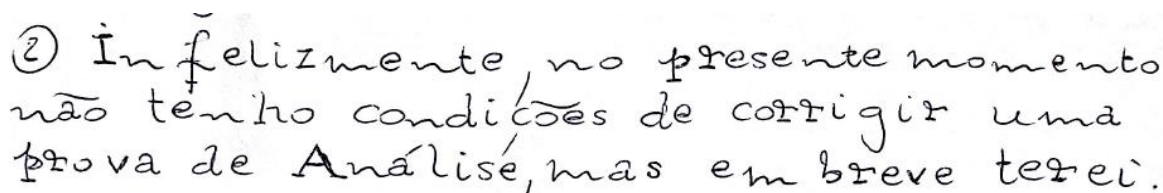 ② Infelizmente, no presente momento
não tenho condições de corrigir uma
prova de Análise, mas em breve terei.